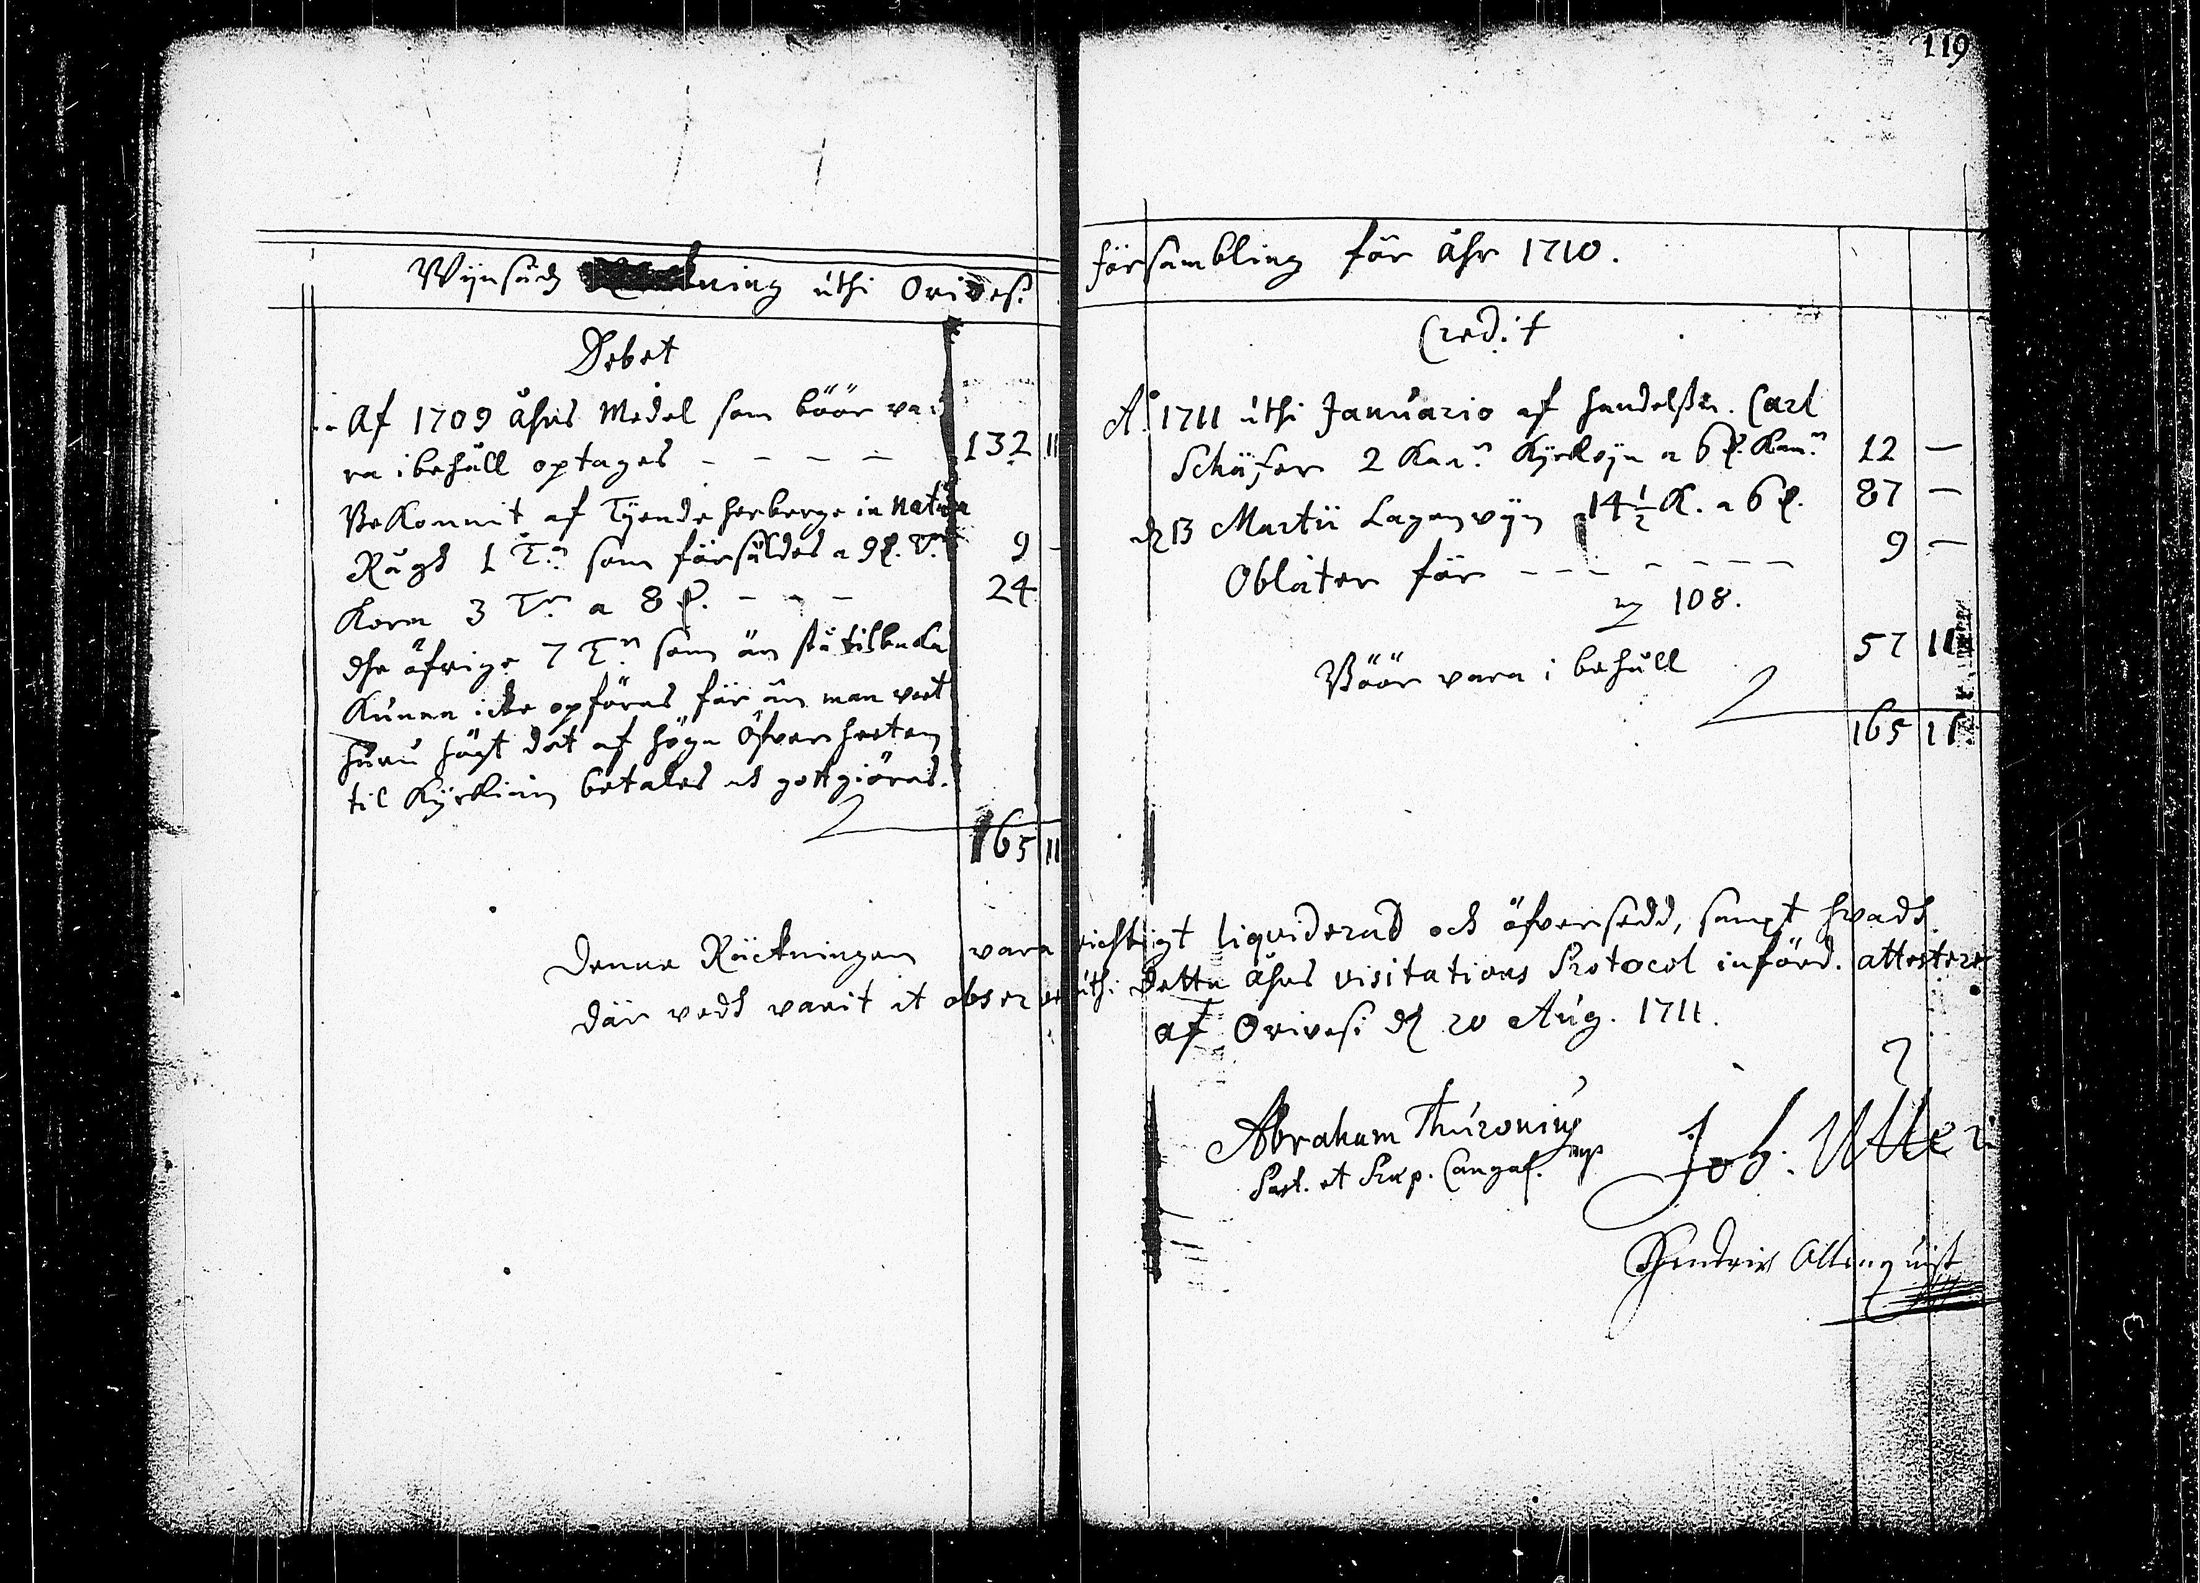 119
Wijnsädz Räckning uthi Orivesi
Debet
Af 1709 åhrs Medel som böör va-
ra i behåll optages - - - - 132 11
Bekommit af Tijende herberge in natura
Rågh 1 T:n som försåldes a 9 d. T:n 9 -
Korn 3 T:n a 8 d. - - - 24
dhe öfrige 7 T:n som än stå tilbaka
kunna icke opföras för än man veet
huru högt det af höga Öfverheeten
til Kyrkian betales och gottgiöras.
165 11
försambling för åhr 1710.
Credit
A:o 1711 uthi Januario af handelsm. Carl
Schäfer 2 Kan:r Kyrkvijn a 6 d. Kan:n 12 -
d 13 Martii Lagenvijn 14 1/2 K. a 6 d. 87 -
Oblater för - - - - - - - 9 -
108.
Böör vara i behåll 57 11
165 11
Denne Räckningen vara richtigt liquiderad och öfversedd, sampt hvadh
där vedh varit at observera uthi detta åhrs visitations Protocol infördt. attesterer
af Orivesi d 20 Aug. 1711.
Abraham Thuronius
Past. et Præp. Cangas. mp
Joh.
Hendrich